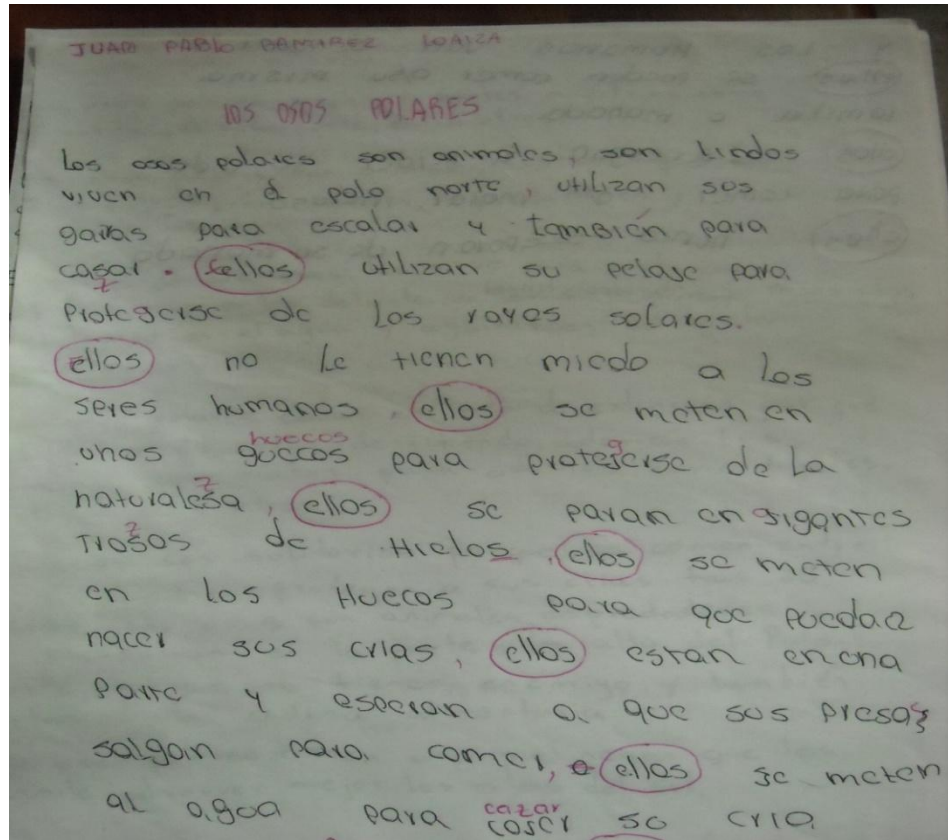 JUAN PABLO RAMIREZ LOAIZA
LOS OSOS POLARES
Los osos polares son animales, son lindos
viven en el polo norte, utilizan sus
garras para escalar y también para
casar. ellos utilizan su pelaje para
z
Protegerse de Los rayos solares.
ellos no le tienen miedo a los
seres humanos, ellos se meten en
huecos
unos guecos para protejerse de La
g
naturalesa, ellos se paran en gigantes
z
Trosos de Hielos, ellos se meten
z
en Los Huecos para que pueda
nacer sus crias, ellos estan en una
Parte y esperan a que sus presas
salgan para comer, ellos se meten
al agua para coser su cria
cazar